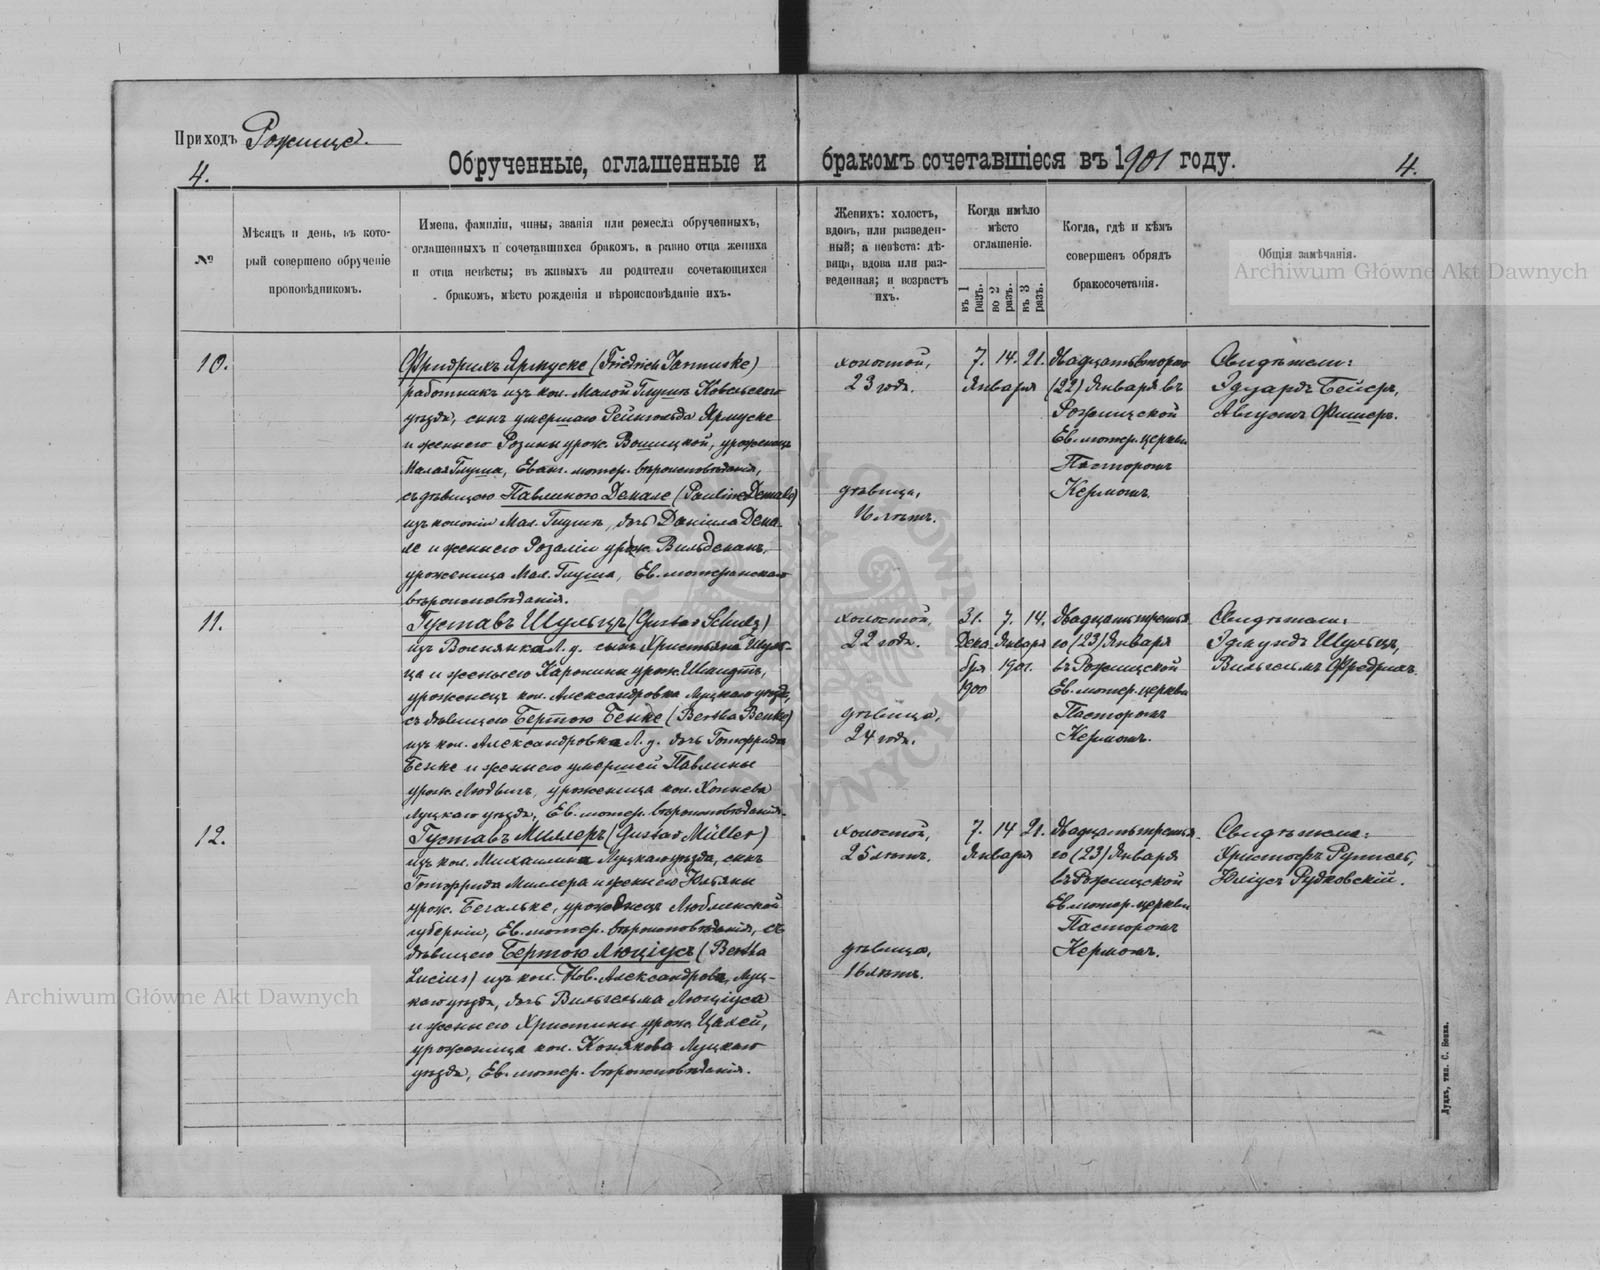 Приходъ Рожище
4.
Обрученные, оглашенные и бракомъ сочетавшіеся въ 1901 году.
4.
№
Мѣсяцъ и день, въ который совершено обрученіе проповѣдникомъ.
Имена, фамиліи, чины, званія или ремесла обрученныхъ,
оглашенныхъ и сочетавшихся бракомъ, а равно отца жениха
и отца невѣсты; въ живыхъ ли родители сочетающихся
бракомъ, мѣсто рожденія и вѣроисповѣданіе ихъ.
Женихъ: холостъ,
вдовъ, или разведен-
ный; а невѣста: дѣ-
вица, вдова или раз-
веденная; и возрастъ
ихъ.
Когда имѣло
мѣсто
оглашеніе.
въ 1 разъ.
во 2 разъ.
въ 3 разъ.
Когда, гдѣ и кѣмъ
совершенъ обрядъ
бракосочетанія.
Общія замѣчанія.
Archiwum Główne Akt Dawnych
10.
Фридрихъ Ярмуске (Friedrich Jarmuske)
работникъ изъ кол. Малой Глуши Ковельскаго
уѣзда, сынъ умершаго Рейнгольда Ярмуске
и жены его Розины урож. Вошицкой, уроженецъ
Малая Глуша, Еванг. лютер. вѣроисповѣданія,
съ дѣвицею Павлиною Демале (Pauline Demale)
изъ колоніи Мал. Глуши, дочь Даніила Дема-
ле и жены его Розаліи урож. Вильдеманъ,
уроженица Мал. Глуша, Ев. лютеранскаго
вѣроисповѣданія.
холостой,
23 годъ.
дѣвица,
16 лѣтъ.
7. 14. 21.
Января
Двадцать второго
(22) Января въ
Рожищской
Ев. лютер. церкви
Пасторомъ
Кермомъ.
Свидѣтели:
Эдуардъ Бейеръ,
Августъ Фишеръ.
11.
Густавъ Шульцъ (Gustav Schulz)
изъ Волнянка Л. у. сынъ Христьяна Шуль-
ца и жены его Каролины урож. Шмидтъ,
уроженецъ кол. Александровка Луцкаго уѣзда,
съ дѣвицею Бертою Бенке (Bertha Benke)
изъ кол. Александровка Л. у. дочь Готфрида
Бенке и жены его умершей Павлины
урож. Людвигъ, уроженица кол. Хопнева
Луцкаго уѣзда, Ев. лютер. вѣроисповѣданія.
холостой,
22 годъ.
дѣвица,
24 годъ.
31. 7. 14.
Дека- Января
бря 1901.
1900
Двадцать третья-
го (23) Января
въ Рожищской
Ев. лютер. церкви
Пасторомъ
Кермомъ.
Свидѣтели:
Эдмундъ Шульцъ,
Вильгельмъ Фредрихъ.
12.
Густавъ Миллеръ (Gustav Müller)
изъ кол. Михаилина Луцкаго уѣзда, сынъ
Готфрида Миллера и жены его Юльяны
урож. Бегальке, уроженецъ Люблинской
губерніи, Ев. лютер. вѣроисповѣданія, съ
дѣвицею Бертою Люціусъ (Bertha
Lucius) изъ кол. Нов. Александровъ, Луц-
каго уѣзда, дочь Вильгельма Люціуса
и жены его Христины урож. Цахей,
уроженица кол. Конякова Луцкаго
уѣзда, Ев. лютер. вѣроисповѣданія.
холостой,
25 лѣтъ.
дѣвица,
16 лѣтъ.
7. 14 21.
Января
Двадцать третья-
го (23) Января
въ Рожищской
Ев. лютер. церкви
Пасторомъ
Кермомъ.
Свидѣтели:
Христофъ Рупиель,
Юліусъ Рудковскій.
Archiwum Główne Akt Dawnych
Луцкъ, тип. С. Бонка.